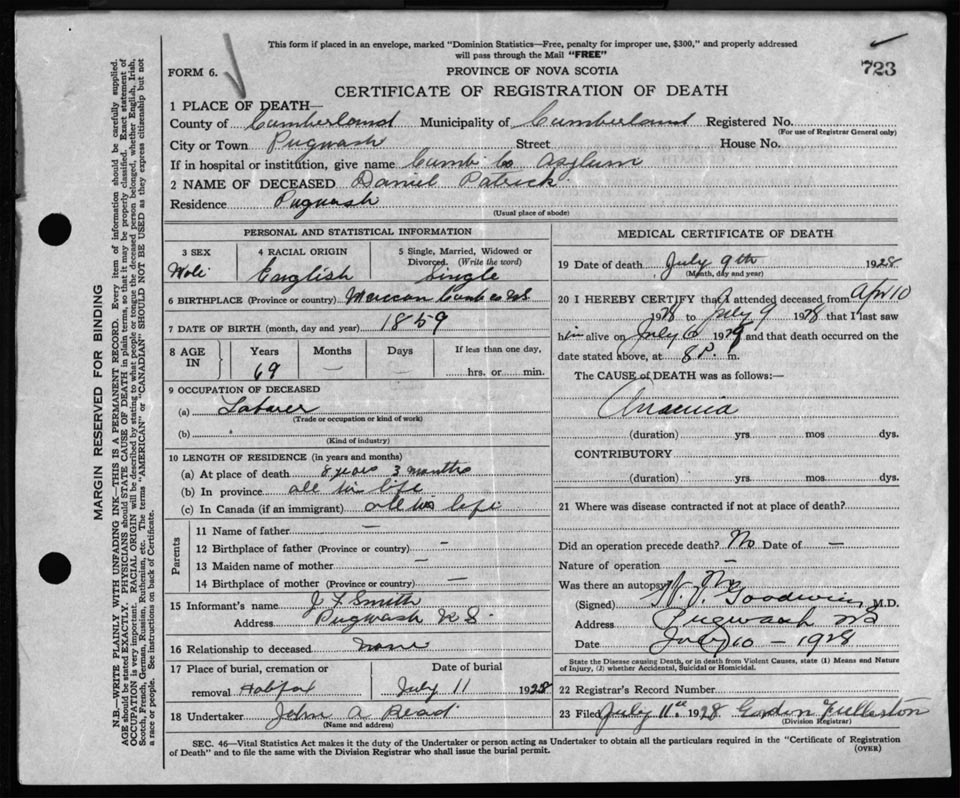 This form if placed in an envelope, marked "Dominion Statistics—Free, penalty for improper use, $300," and properly addressed
will pass through the Mail "FREE"
723
FORM 6.
PROVINCE OF NOVA SCOTIA
CERTIFICATE OF REGISTRATION OF DEATH
1 PLACE OF DEATH—
County of Cumberland Municipality of Cumberland Registered No.
(For use of Registrar General only)
City or Town Pugwash Street House No.
If in hospital or institution, give name Cumb Co Asylum
2 NAME OF DECEASED Daniel Patrick
Residence Pugwash
(Usual place of abode)
PERSONAL AND STATISTICAL INFORMATION
3 SEX 4 RACIAL ORIGIN 5 Single, Married, Widowed or
Divorced. (Write the word)
English Single
6 BIRTHPLACE (Province or country) Maccan Cumb co NS
7 DATE OF BIRTH (month, day and year) 1859
8 AGE IN Years Months Days If less than one day,
69 — — hrs. or min.
9 OCCUPATION OF DECEASED
(a) Laborer
(Trade or occupation or kind of work)
(b)
(Kind of industry)
10 LENGTH OF RESIDENCE (in years and months)
(a) At place of death 8 years 3 months
(b) In province all his life
(c) In Canada (if an immigrant) all his life
Parents
11 Name of father —
12 Birthplace of father (Province or country) —
13 Maiden name of mother —
14 Birthplace of mother (Province or country) —
15 Informant's name J F Smith
Address Pugwash N S.
16 Relationship to deceased none
17 Place of burial, cremation or Date of burial
removal Halifax July 11 1928
18 Undertaker John A Read
(Name and address)
MEDICAL CERTIFICATE OF DEATH
19 Date of death July 9th 1928
(Month, day and year)
20 I HEREBY CERTIFY that I attended deceased from Apr 10
1928 to July 9 1928 that I last saw
him alive on July 6 1928 and that death occurred on the
date stated above, at 8 P. m.
The CAUSE of DEATH was as follows:—
Anaemia
(duration) yrs. mos dys.
CONTRIBUTORY
(duration) yrs. mos. dys.
21 Where was disease contracted if not at place of death?
Did an operation precede death? No Date of —
Nature of operation —
Was there an autopsy No
(Signed) Goodwin M.D.
Address Pugwash NS
Date July 10 — 1928
State the Disease causing Death, or in death from Violent Causes, state (1) Means and Nature
of Injury, (2) whether Accidental, Suicidal or Homicidal.
22 Registrar's Record Number
23 Filed July 11th 1928 Gordon Fullerton
(Division Registrar)
SEC. 46—Vital Statistics Act makes it the duty of the Undertaker or person acting as Undertaker to obtain all the particulars required in the "Certificate of Registration
of Death" and to file the same with the Division Registrar who shall issue the burial permit.
(OVER)
MARGIN RESERVED FOR BINDING
N.B.—WRITE PLAINLY WITH UNFADING INK—THIS IS A PERMANENT RECORD. Every item of information should be carefully supplied.
AGE should be stated EXACTLY. PHYSICIANS should STATE CAUSE OF DEATH in plain terms, so that it may be properly classified. Exact statement of
OCCUPATION is very important. RACIAL ORIGIN will be described by stating to what people or tongue the deceased person belonged, whether English, Irish,
Scotch, French, German, Russian, Ruthenian, etc. The terms "AMERICAN" or "CANADIAN" SHOULD NOT BE USED as they express citizenship but not
a race or people. See instructions on back of Certificate.